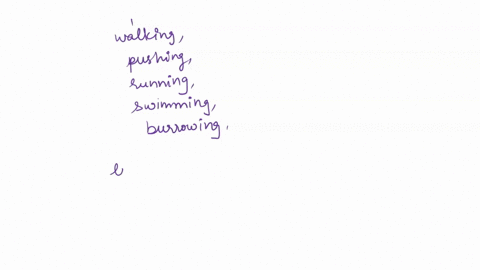 walking,
pushing,
running,
swimming,
burrowing.
l